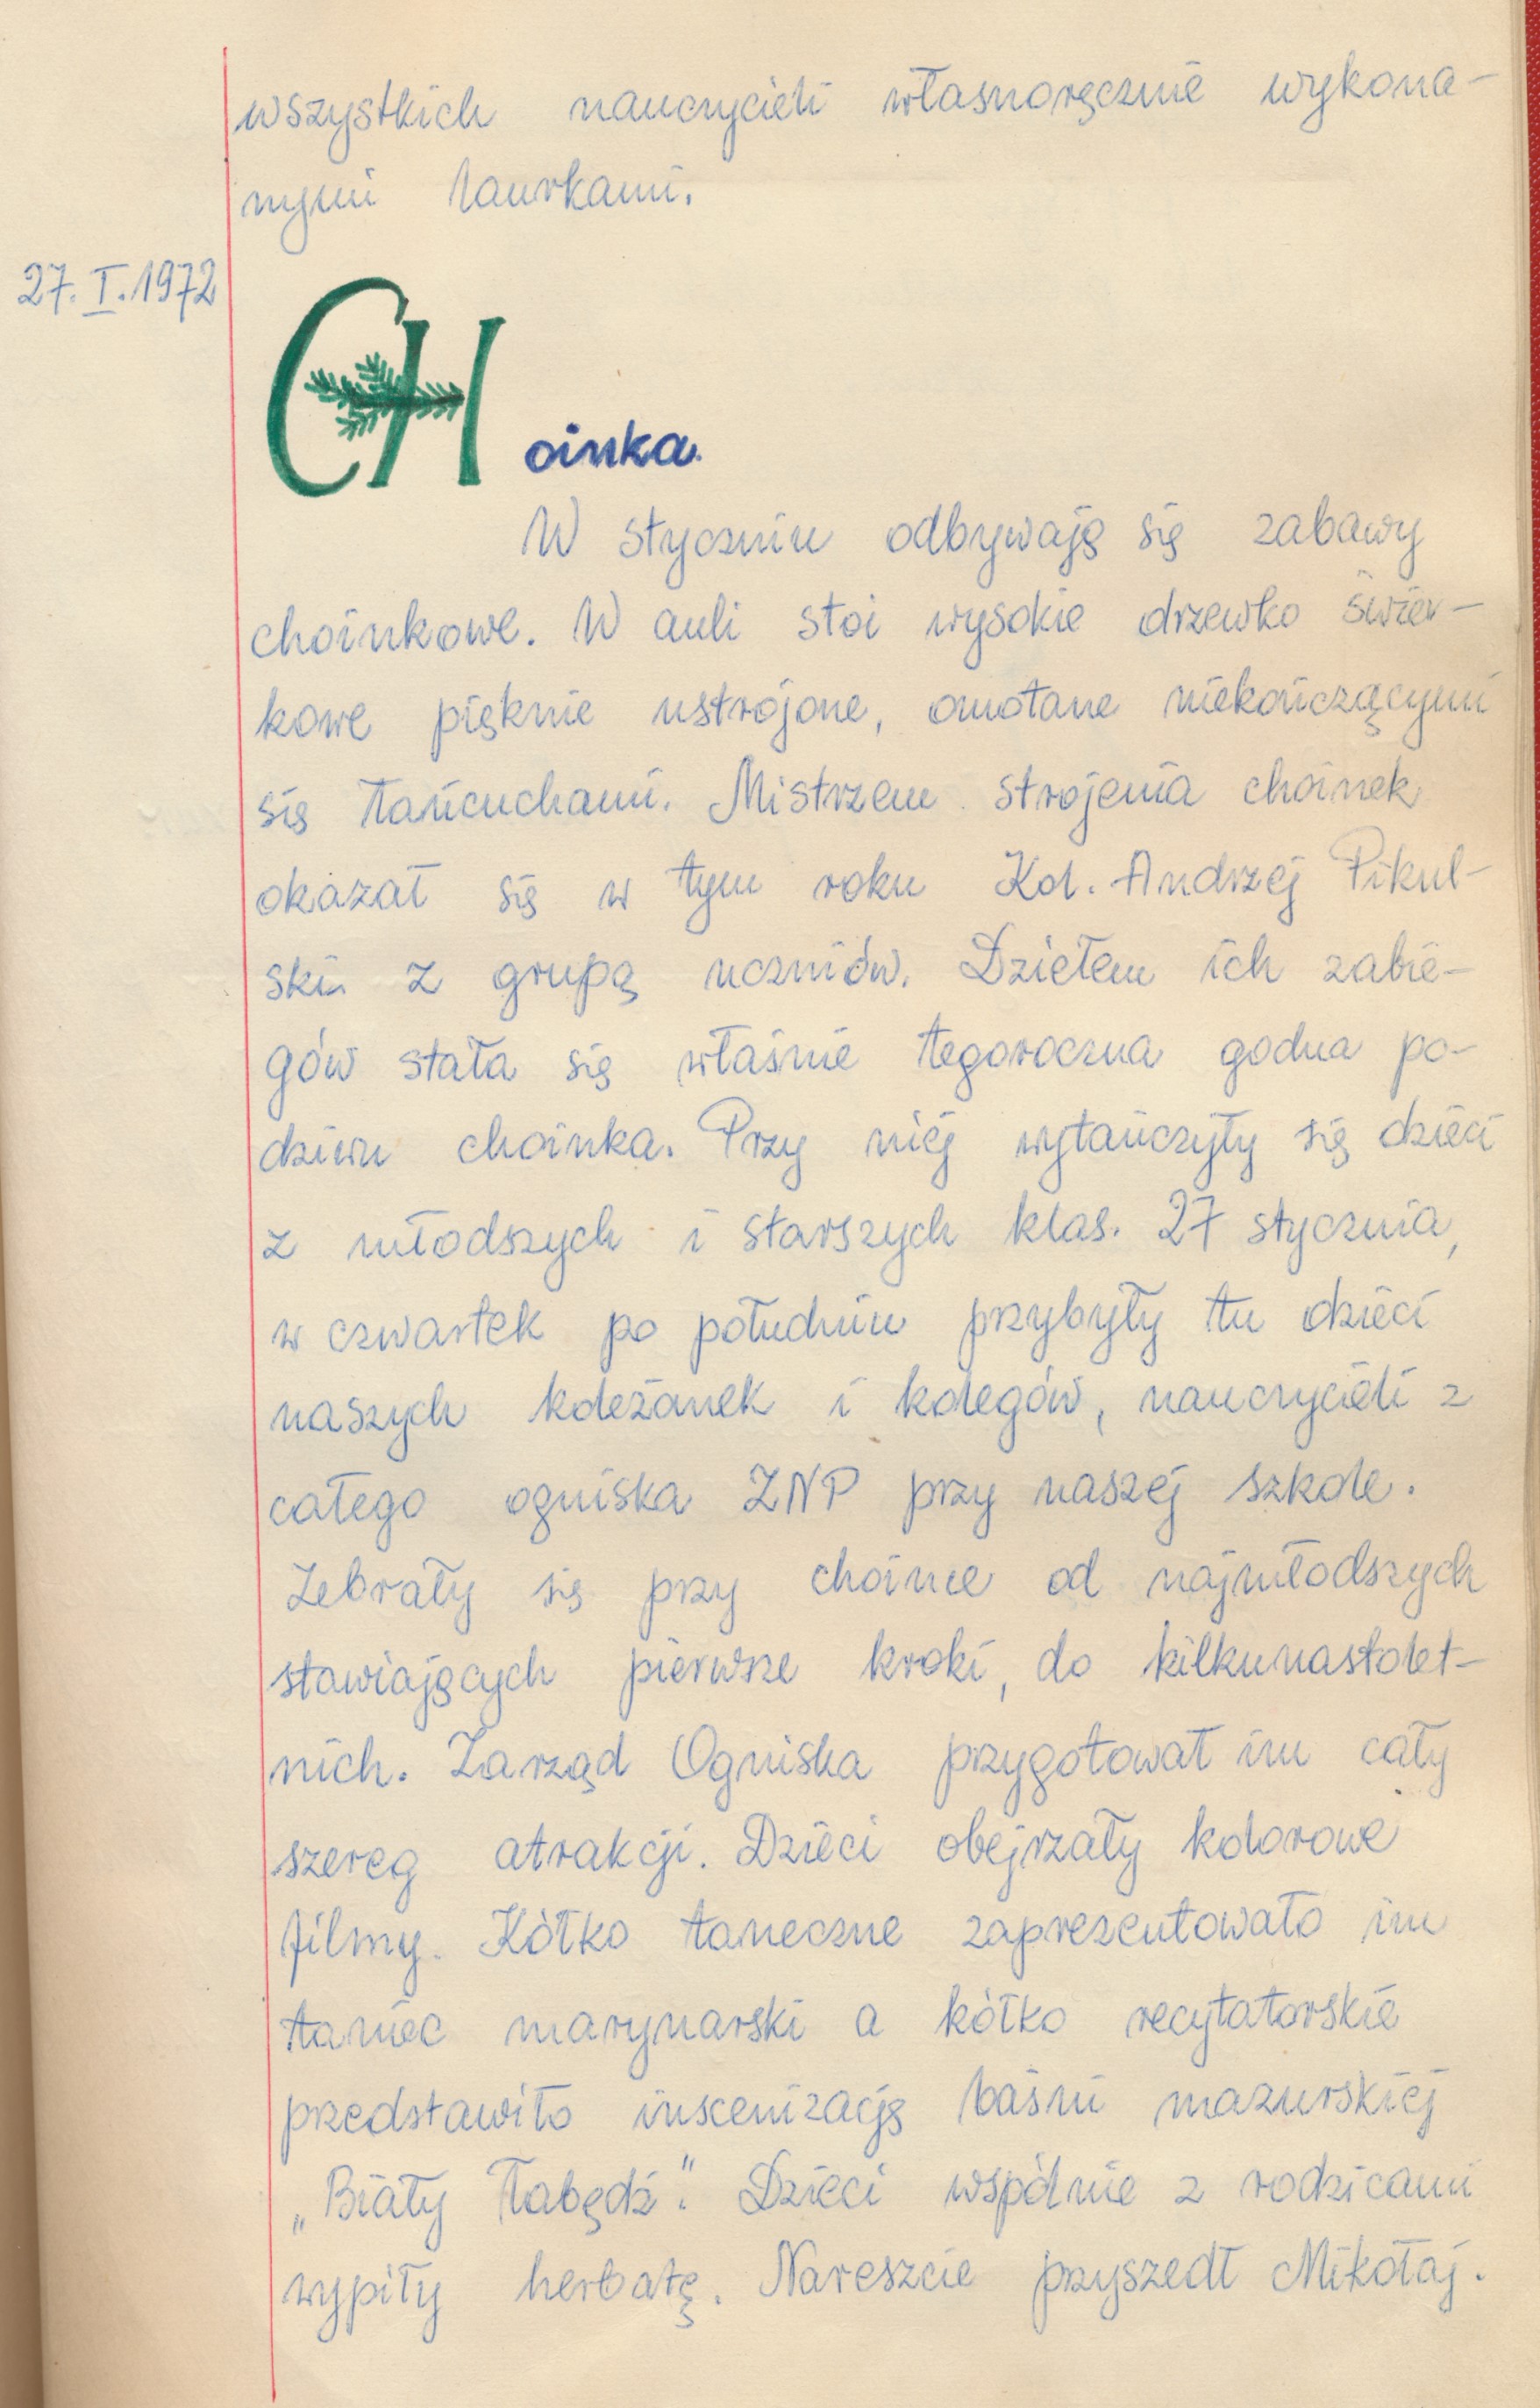 wszystkich nauczycieli własnoręcznie wykona-
nymi laurkami.
27. I. 1972
CHoinka.
W styczniu odbywają się zabawy
choinkowe. W auli stoi wysokie drzewko świer-
kowe pięknie ustrojone, omotane niekończącymi
się łańcuchami. Mistrzem strojenia choinek
okazał się w tym roku Kol. Andrzej Pikul-
ski z grupą uczniów. Dziełem ich zabie-
gów stała się właśnie tegoroczna godna po-
dziwu choinka. Przy niej wytańczyły się dzieci
z młodszych i starszych klas. 27 stycznia,
w czwartek po południu przybyły tu dzieci
naszych koleżanek i kolegów, nauczycieli z
całego ogniska ZNP przy naszej szkole.
Zebrały się przy choince od najmłodszych
stawiających pierwsze kroki, do kilkunastolet-
nich. Zarząd Ogniska przygotował im cały
szereg atrakcji. Dzieci obejrzały kolorowe
filmy. Kółko taneczne zaprezentowało im
taniec marynarski a kółko recytatorskie
przedstawiło inscenizację baśni mazurskiej
„Biały Łabędź". Dzieci wspólnie z rodzicami
wypiły herbatę. Nareszcie przyszedł Mikołaj.